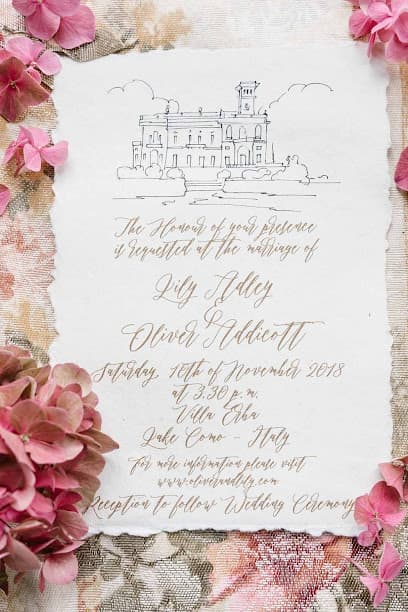 The Honour of your presence
is requested at the marriage of
Lily Adley
&
Oliver Addicott
Saturday, 10th of November 2018
at 3.30 p.m.
Villa Erba
Lake Como - Italy
For more information please visit
www.oliverandlily.com
Reception to follow Wedding Ceremony